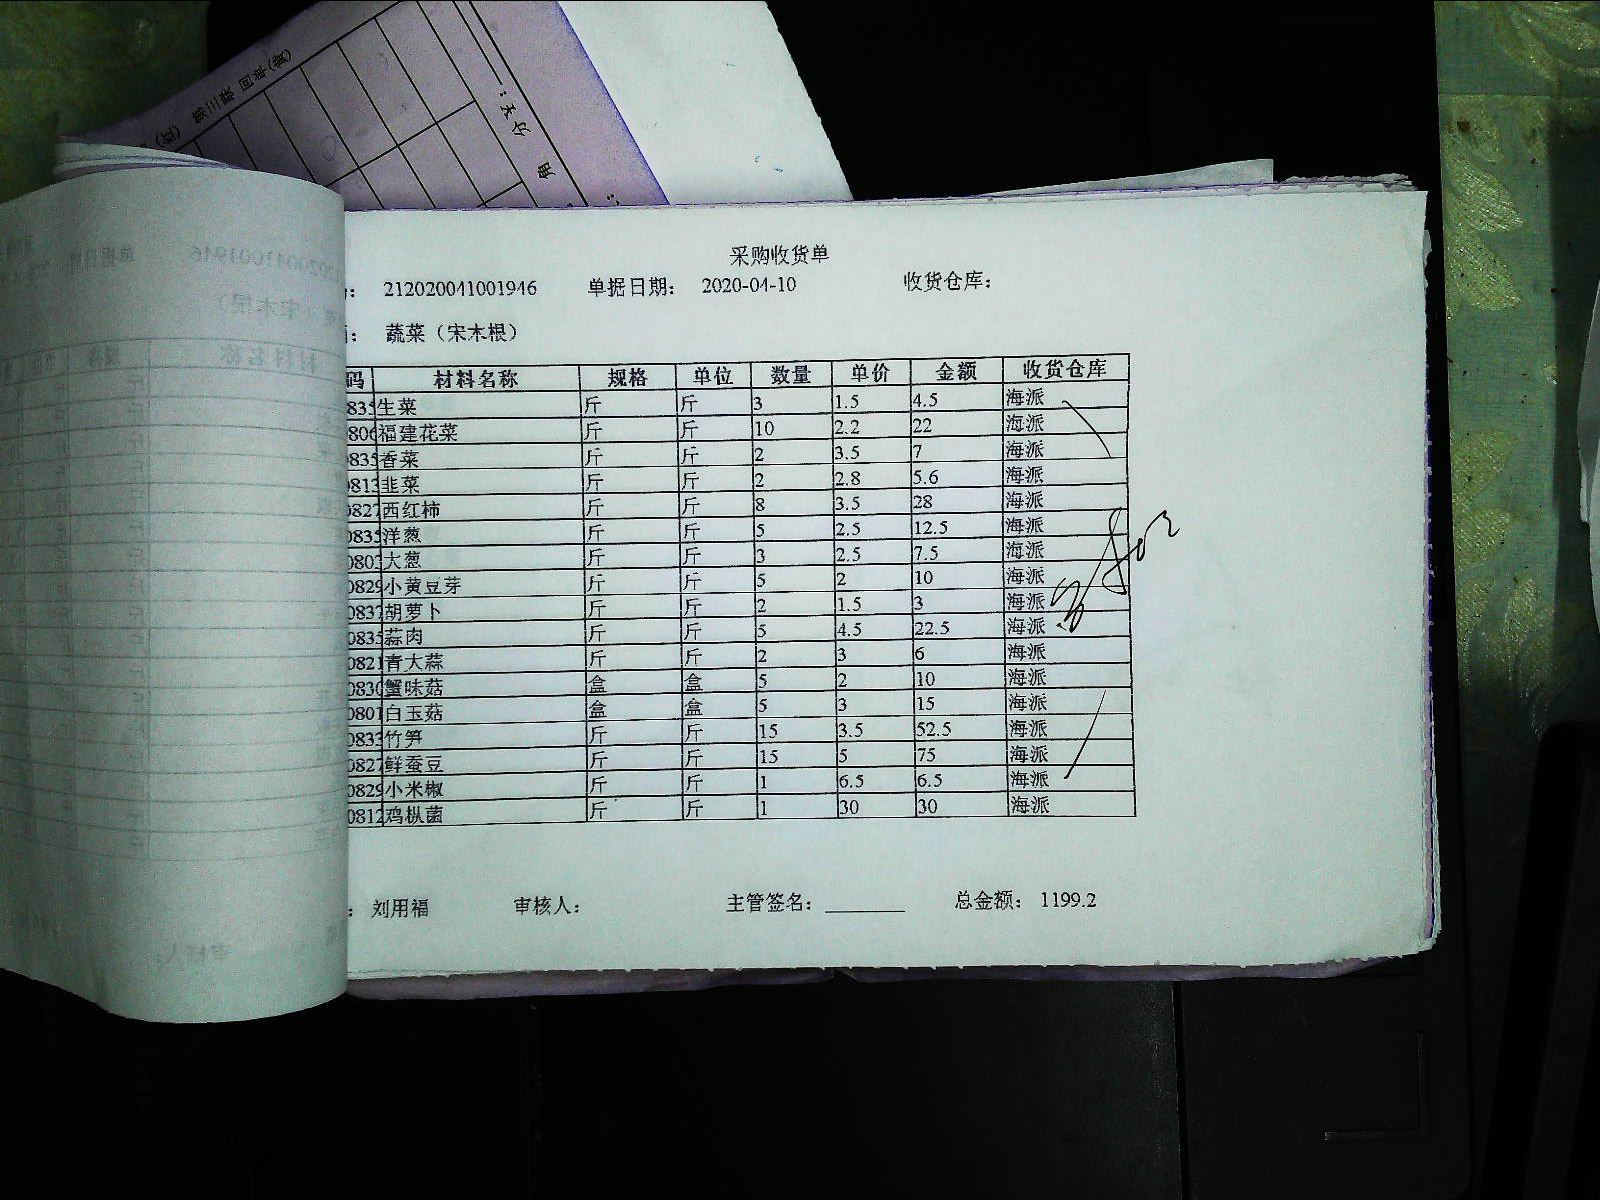 (红) 第三联 回单(黄)
角 分
采购收货单
212020041001946 单据日期: 2020-04-10 收货仓库:
蔬菜（宋木根）
码 材料名称 规格 单位 数量 单价 金额 收货仓库
生菜 斤 斤 3 1.5 4.5 海派
福建花菜 斤 斤 10 2.2 22 海派
香菜 斤 斤 2 3.5 7 海派
韭菜 斤 斤 2 2.8 5.6 海派
西红柿 斤 斤 8 3.5 28 海派
洋葱 斤 斤 5 2.5 12.5 海派
大葱 斤 斤 3 2.5 7.5 海派
0829 小黄豆芽 斤 斤 5 2 10 海派
0837 胡萝卜 斤 斤 2 1.5 3 海派
0835 蒜肉 斤 斤 5 4.5 22.5 海派
0821 青大蒜 斤 斤 2 3 6 海派
0830 蟹味菇 盒 盒 5 2 10 海派
0801 白玉菇 盒 盒 5 3 15 海派
0833 竹笋 斤 斤 15 3.5 52.5 海派
0827 鲜蚕豆 斤 斤 15 5 75 海派
0829 小米椒 斤 斤 1 6.5 6.5 海派
0812 鸡枞菌 斤 斤 1 30 30 海派
: 刘用福 审核人: 主管签名: ________ 总金额: 1199.2